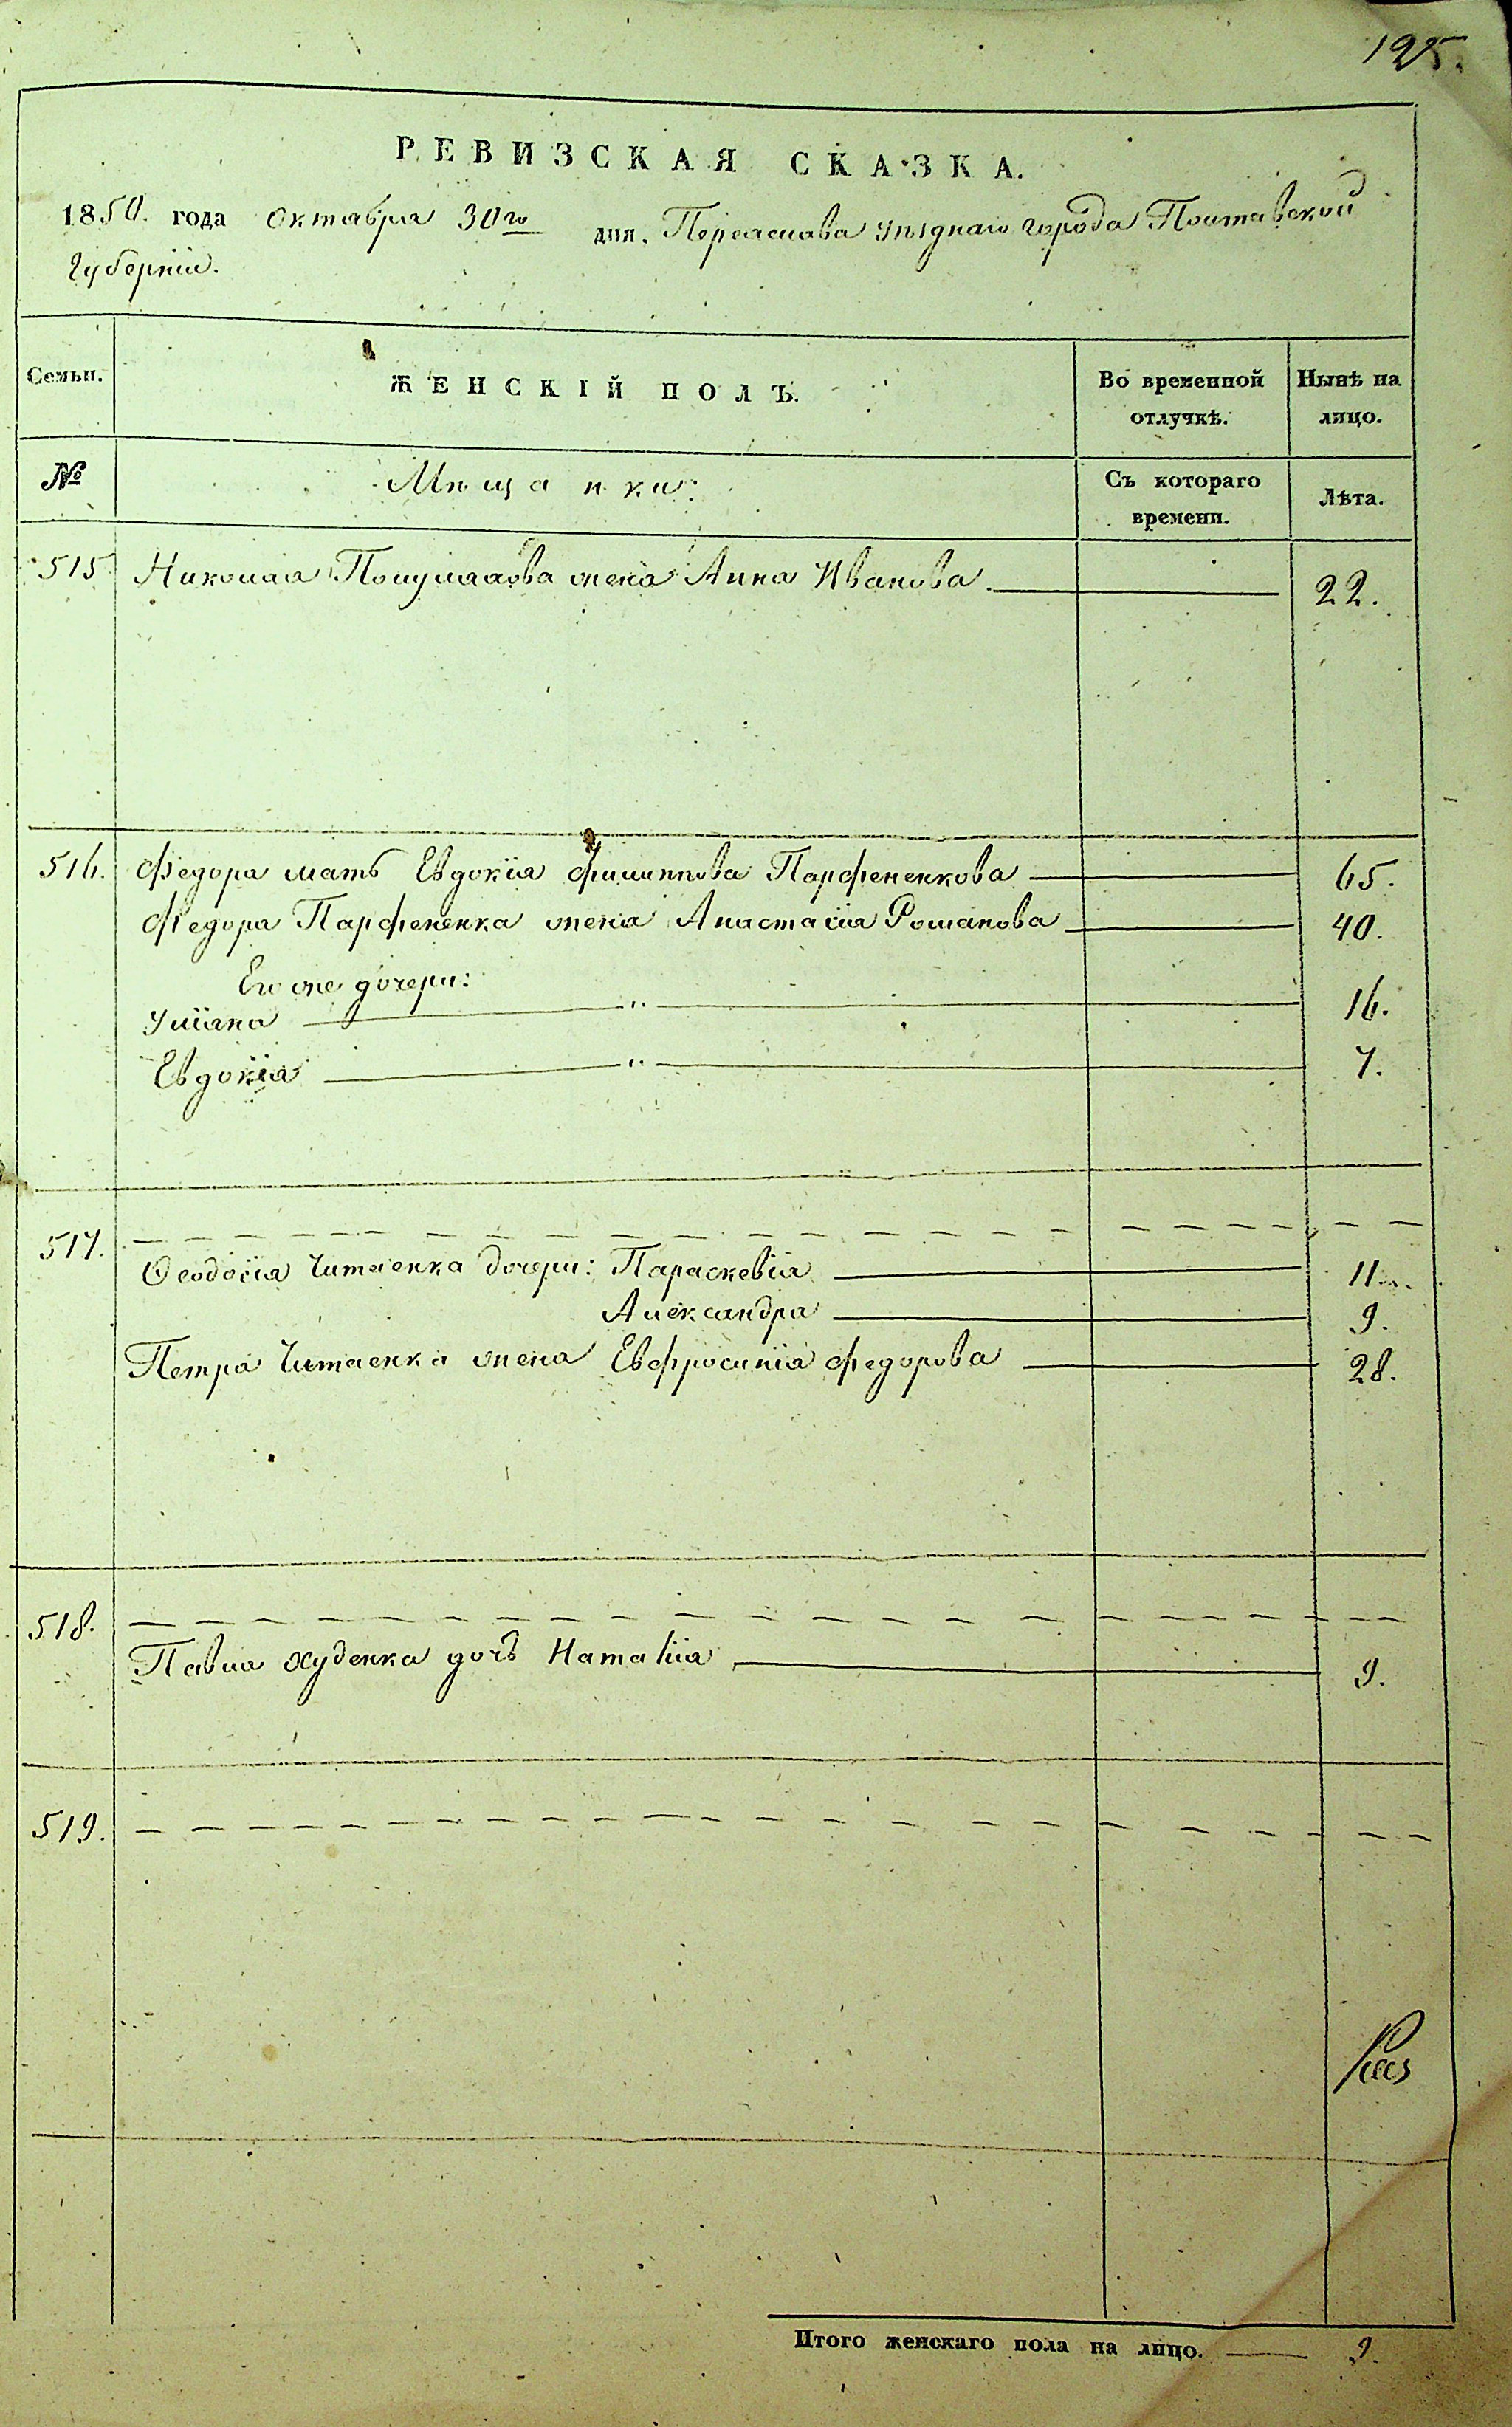 125.
РЕВИЗСКАЯ СКАЗКА.
1850. года Октября 30го дня. Переяслава уѣзднаго города Полтавской
Губерніи.
Семьи.
ЖЕНСКІЙ ПОЛЪ.
Во временной отлучкѣ.
Нынѣ на лицо.
№
Мѣщанки:
Съ котораго времени.
Лѣта.
515. Николая жена Анна Иванова. 22.
516. Федора мать Евдокія Филиппова Парфененкова 65.
Федора Парфененка жена Анастасія Романова 40.
Его же дочери:
Уліяна " 16.
Евдокія " 7.
517.
Ѳеодосія Читаенка дочери: Параскевія 11.
Александра 9.
Петра Читаенка жена Евфросинія Федорова 28.
518.
Павла Худенка дочь Наталія 9.
519.
Итого женскаго пола на лицо. 9.